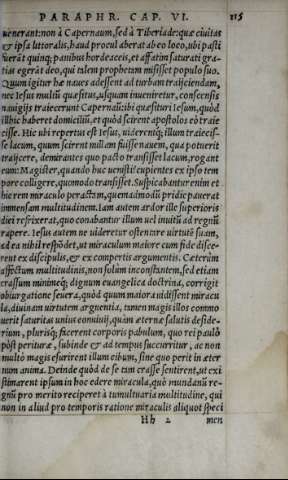 PARAPHR. CAP. VI. 115
uenerant: non à Capernaum, sed à Tiberiade: quæ ciuitas
& ipsa littoralis, haud procul aberat ab eo loco, ubi pasti
fuerāt quinq; panibus hordeaceis, et affatim saturati gra-
tias egerāt deo, qui talem prophetam misisset populo suo.
Quum igitur hæ naues adessent ad turbam traijciendam,
nec Iesus multū quæsitus, usquam inueniretur, conscensis
nauigijs traiecerunt Capernaū: ibi quæsituri Iesum, quòd
illhic haberet domiciliū, et quòd scirent apostolos eò traie
cisse. Hic ubi repertus est Iesus, uiderentq; illum traiecis-
se lacum, quum scirent nullam fuisse nauem, qua potuerit
traijcere, demirantes quo pacto transisset lacum, rogant
eum: Magister, quando huc uenisti? cupientes ex ipso tem
pore colligere, quomodo transisset. Suspicabantur enim et
hic rem miraculo peractam, quemadmodū pridie pauerat
immensam multitudinem. Iam autem ardor ille superioris
diei refrixerat, quo conabantur illum uel inuitū ad regnū
rapere. Iesus autem ne uideretur ostentare uirtutē suam,
ad ea nihil respōdet, ut miraculum maiore cum fide disce-
rent ex discipulis, & ex compertis argumentis. Cæterùm
affectum multitudinis, non solùm inconstantem, sed etiam
crassum minimeq; dignum euangelica doctrina, corrigit
obiurgatione seuera, quòd quum maiora uidissent miracu
la, diuinam uirtutem arguentia, tamen magis illos commo
uerit saturitas unius conuiuij, quàm æternæ salutis deside-
rium, plurisq; facerent corporis pabulum, quo rei paulò
pòst perituræ, subinde & ad tempus succurritur, ac non
multò magis esurirent illum cibum, sine quo perit in æter
num anima. Deinde quòd de se tam crasse sentirent, ut exi
stimarent ipsum in hoc edere miracula, quò mundanū re-
gnū pro merito reciperet à tumultuaria multitudine, qui
non in aliud pro temporis ratione miraculis aliquot speci
Hh 2 men